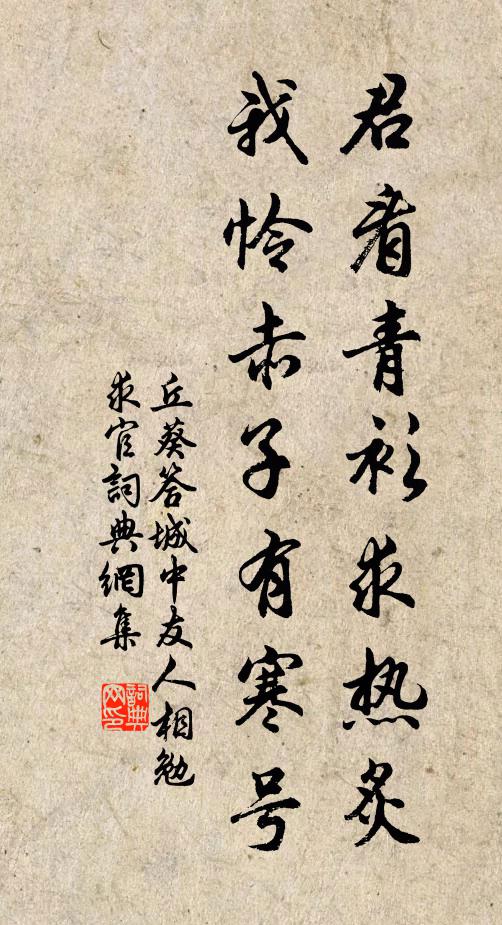 君看青衫求热炙
我怜赤子有寒号
丘葵答城中友人相勉
求官詞典網集
詞典
网印